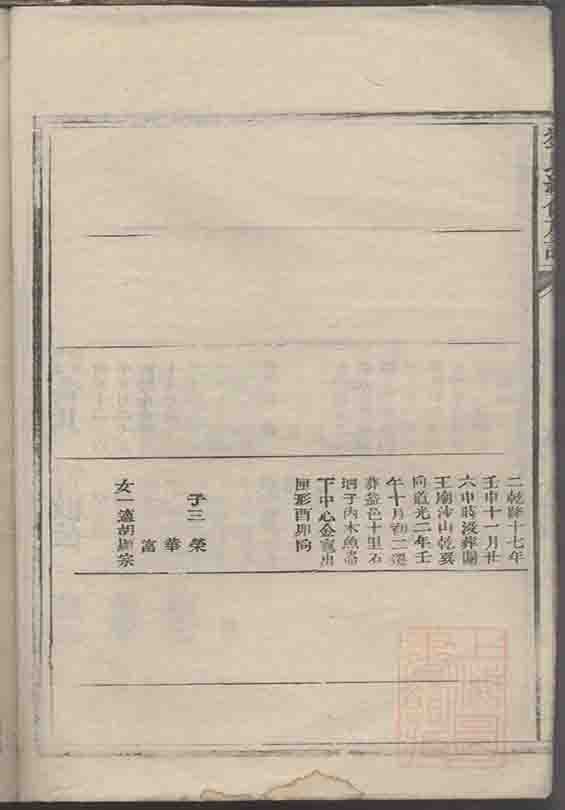 二乾隆十七年
壬申十一月廿
六申時歿葬關
王廟沙山乾巽
向道光二年壬
午十月初二遷
葬益邑十里石
垇子內木魚崙
下中心金寬出
匣形酉卯向
子三榮
華
富
女一適胡顯宗